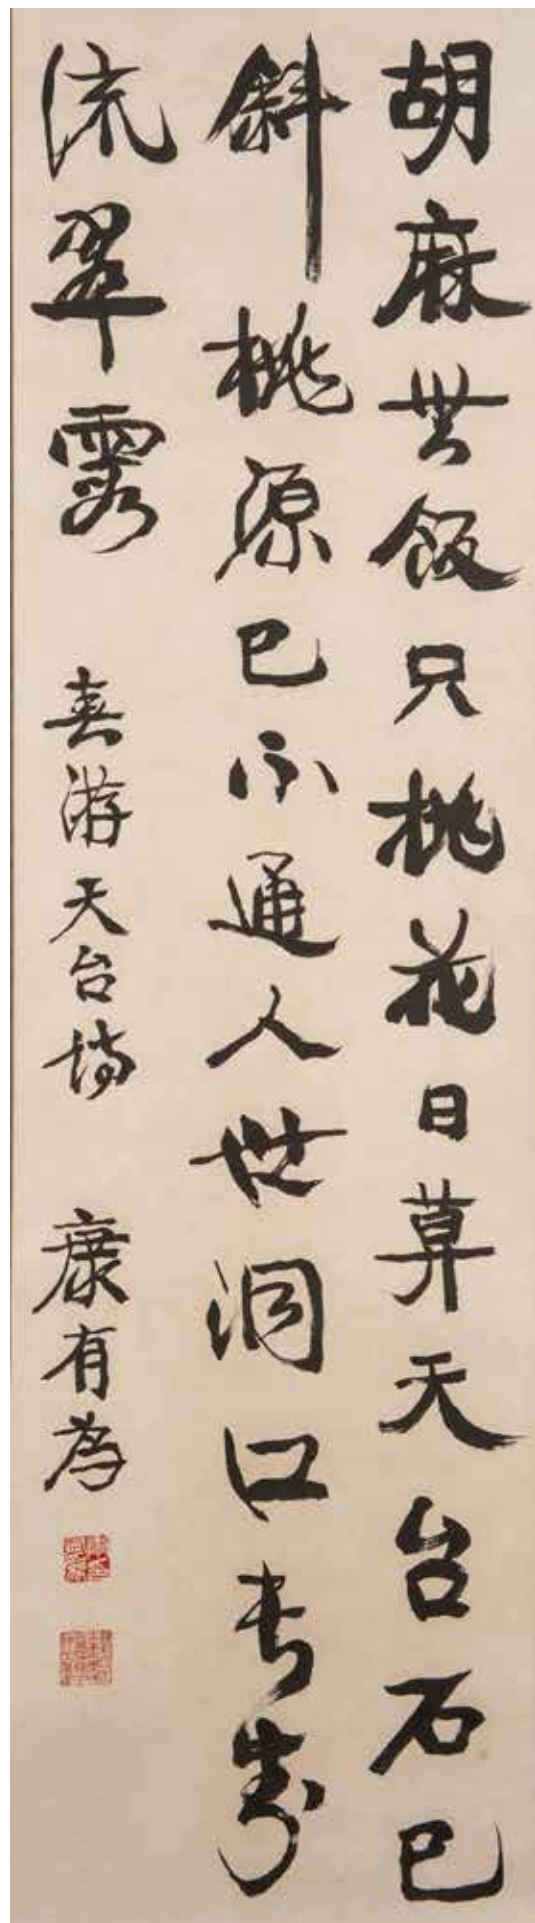 胡麻無飯只桃花日莫天台石已
斜桃源已不通人世洞口
流翠霞 春游天台歸 康有為